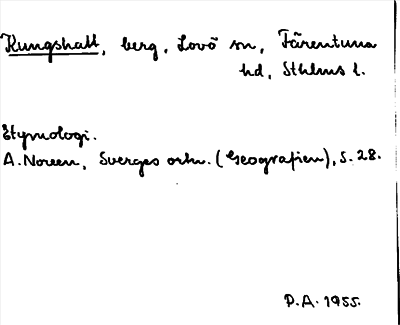 Kungshatt, berg, Lovö sn, Färentuna
hd, Sthlms l.
Etymologi.
A. Noreen, Sverges ortn. (Geografien), s. 28.
P.A. 1955.